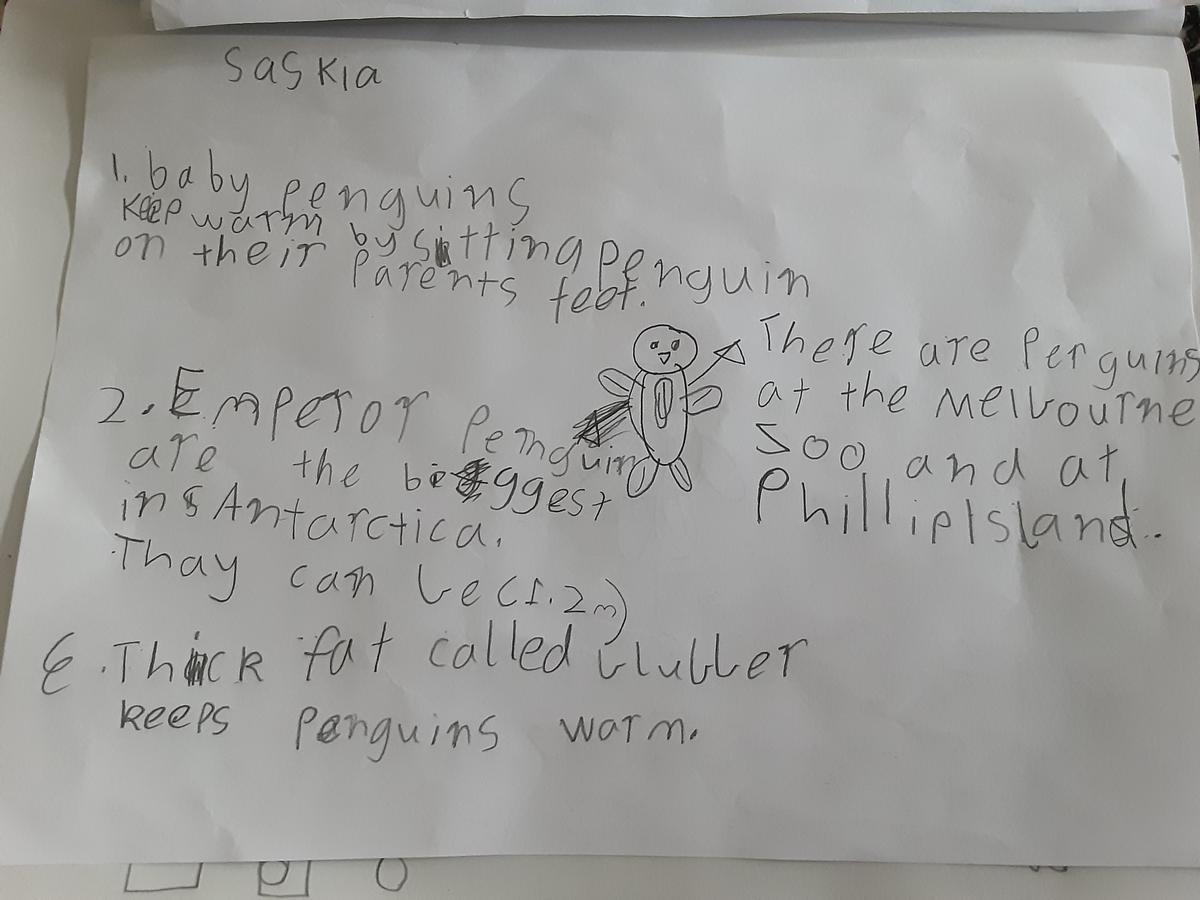 Saskia
1. baby penguins
keep warm by sitting
on their parents feet.
penguin
2. Emperor Pemguin
are the biggest
in Antarctica.
Thay can be (1.2m)
There are Perguins
at the Melbourne
Soo and at
Phillip Island.
3. Thick fat called blubber
keeps penguins warm.